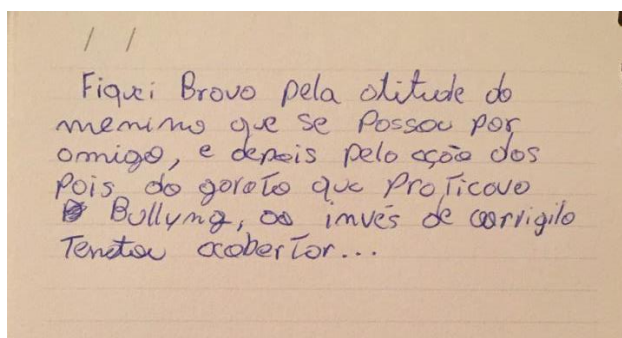 / /
Fiquei Bravo pela atitude do
menino que se Passou por
amigo, e depois pela ação dos
Pais do garoto que Praticava
Bullyng, ao invés de corrigilo
Tentou acobertar...